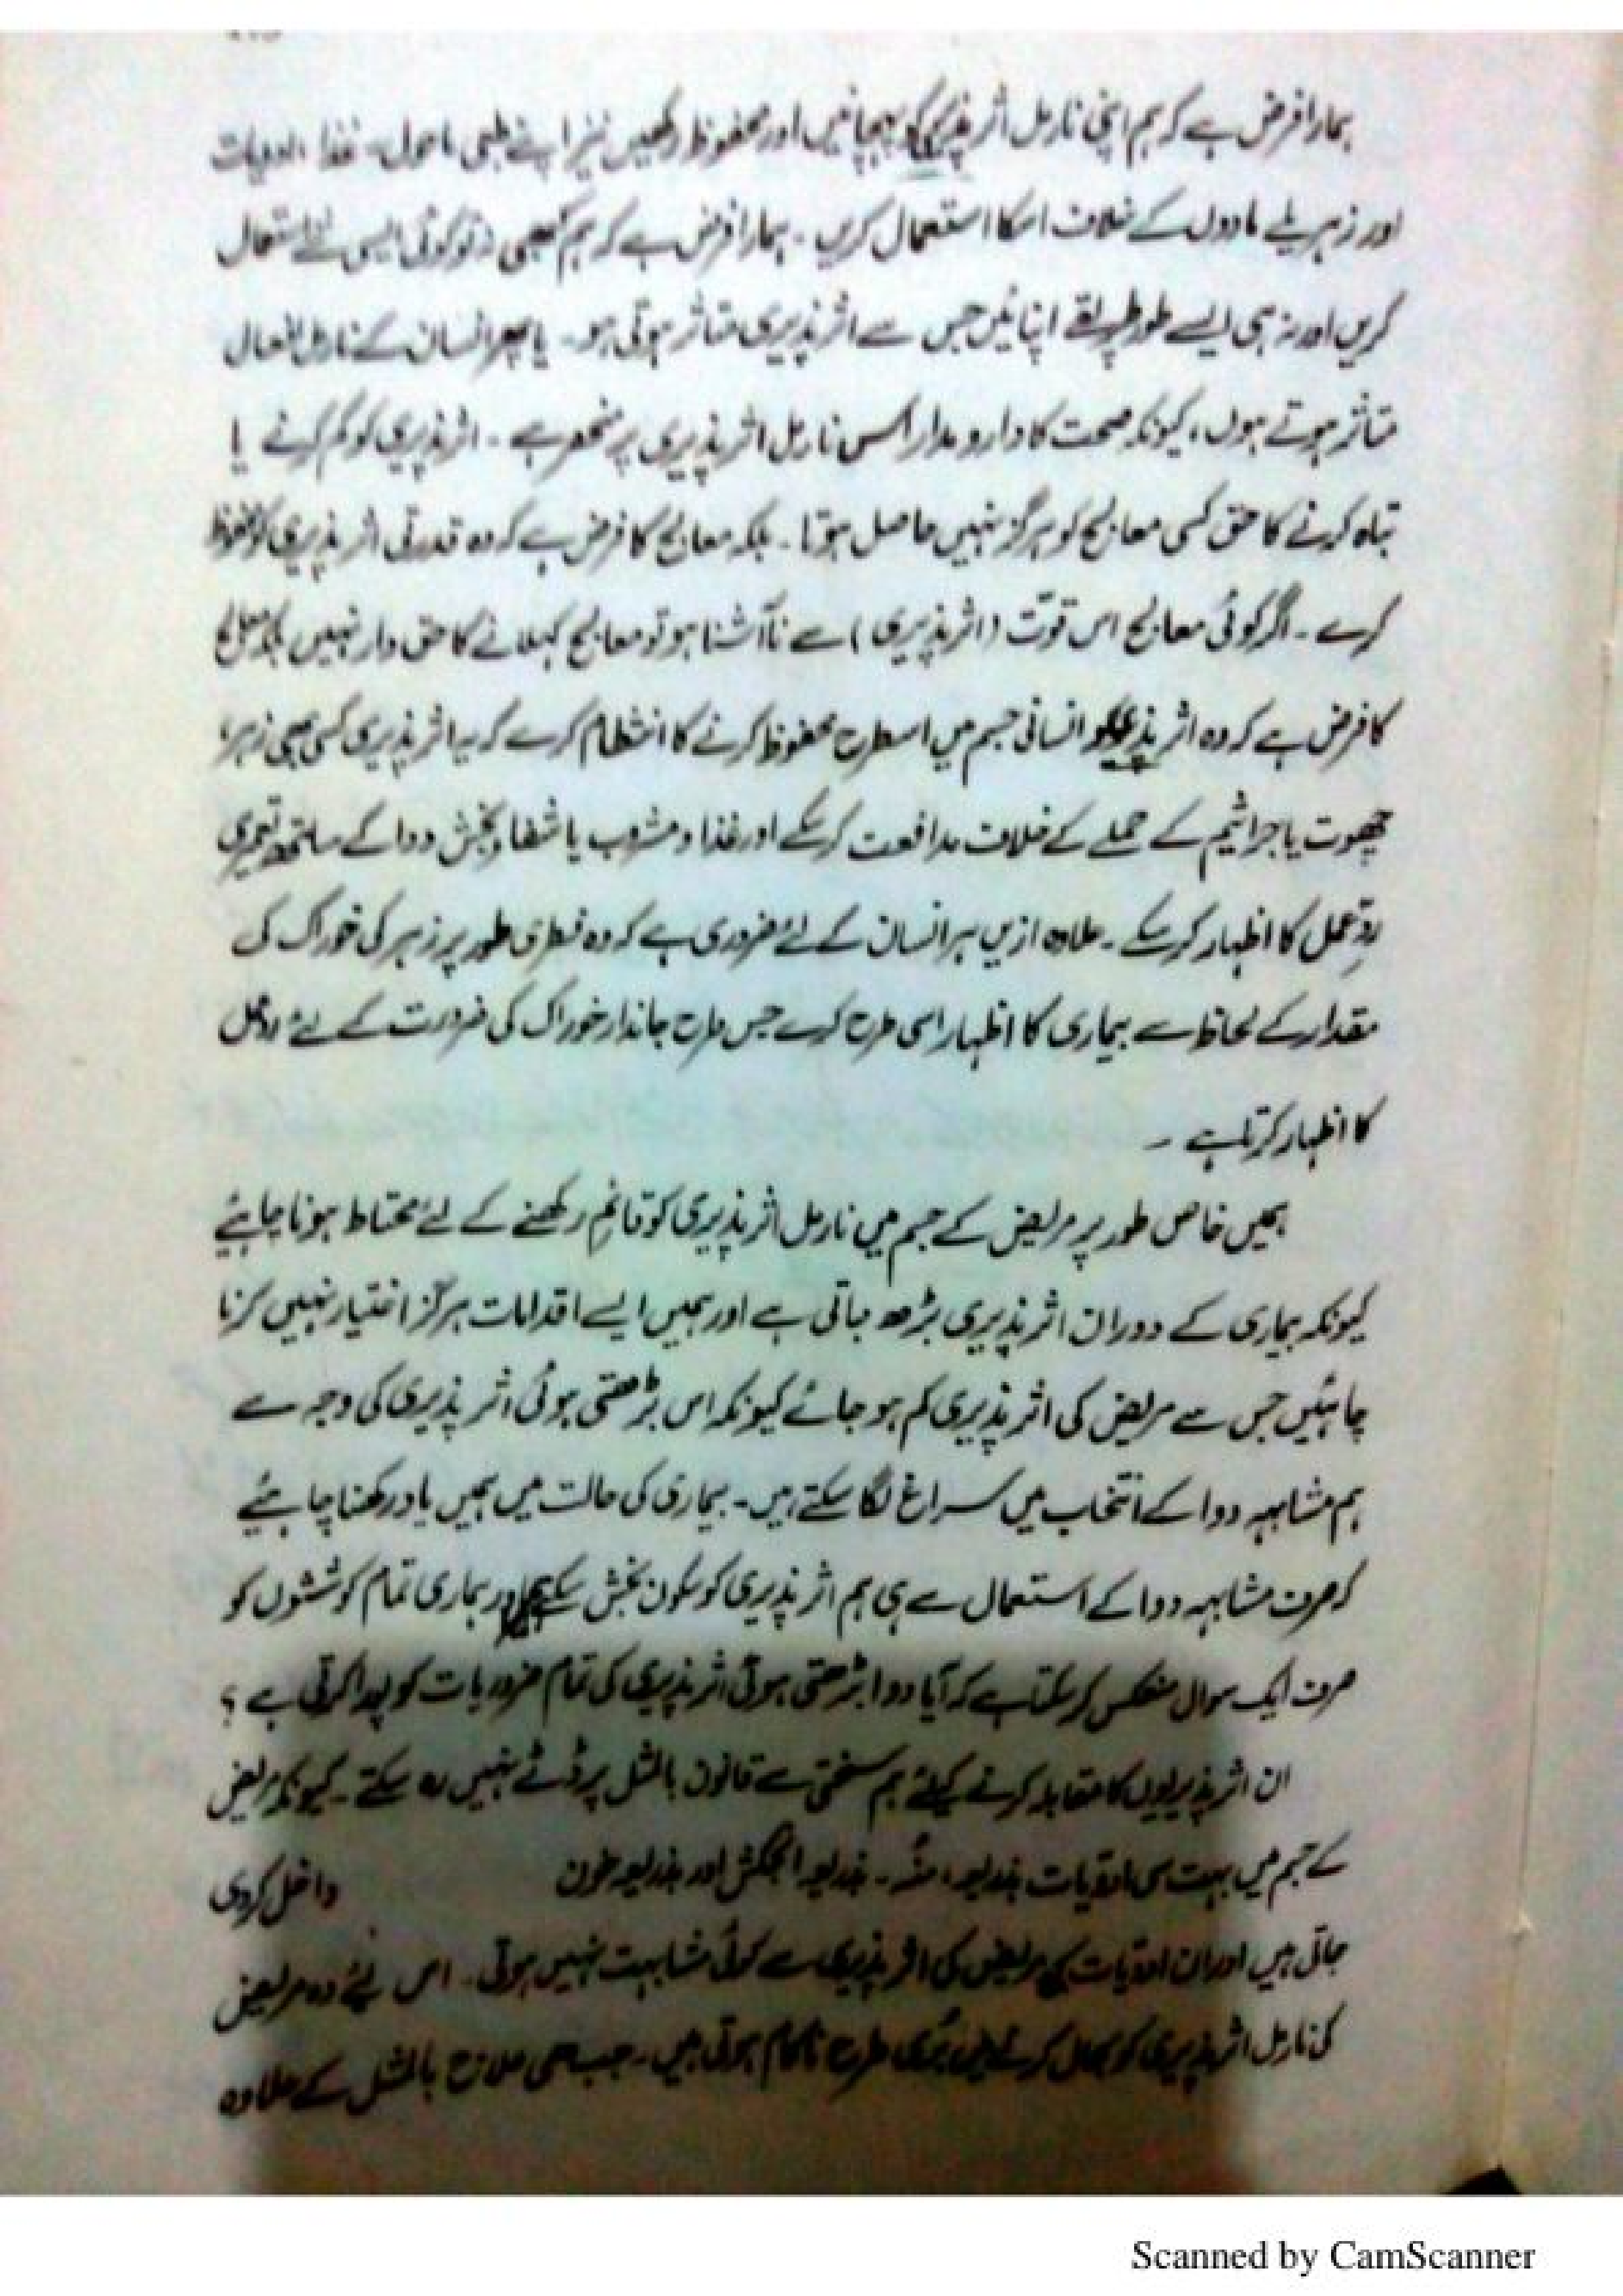 ہمارا فرض ہے کہ ہم اپنی نارمل اثر پذیری کو پہچانیں اور محفوظ رکھیں نیز اپنے طبعی ماحول۔ غذا، ادویات
اور زہریلے مادوں کے خلاف اسکا استعمال کریں۔ ہمارا فرض ہے کہ ہم کبھی نہ تو کوئی ایسی شے استعمال
کریں اور نہ ہی ایسے طور طریقے اپنائیں جس سے اثر پذیری متاثر ہوتی ہو۔ یا پھر انسان کے نارمل افعال
متاثر ہوتے ہوں، کیونکہ صحت کا دارومدار اسی نارمل اثر پذیری پر منحصر ہے۔ اثر پذیری کو گم کرنے یا
تباہ کرنے کا حق کسی معالج کو ہرگز نہیں حاصل ہوتا۔ بلکہ معالج کا فرض ہے کہ وہ قدرتی اثر پذیری کو محفوظ
کرے۔ اگر کوئی معالج اس قوّت (اثر پذیری) سے ناآشنا ہو تو معالج کہلانے کا حق دار نہیں بلکہ معالج
کا فرض ہے کہ وہ اثر پذیری کو انسانی جسم میں اسطرح محفوظ کرنے کا انتظام کرے کہ یہ اثر پذیری کسی بھی زہر،
چھوت یا جراثیم کے حملے کے خلاف مدافعت کر سکے اور غذا و مشروب یا شفا بخش دوا کے ساتھ تعمیری
ردِّ عمل کا اظہار کر سکے۔ علاوہ ازیں ہر انسان کے لئے ضروری ہے کہ وہ فطری طور پر زہر کی خوراک کی
مقدار کے لحاظ سے بیماری کا اظہار اسی طرح کرے جس طرح جاندار خوراک کی ضرورت کے لئے ردعمل
کا اظہار کرتا ہے۔
ہمیں خاص طور پر مریض کے جسم میں نارمل اثر پذیری کو قائم رکھنے کے لئے محتاط ہونا چاہئے
کیونکہ بیماری کے دوران اثر پذیری بڑھ جاتی ہے اور ہمیں ایسے اقدامات ہرگز اختیار نہیں کرنا
چاہئیں جس سے مریض کی اثر پذیری کم ہو جائے کیونکہ اس بڑھتی ہوئی اثر پذیری کی وجہ سے
ہم مشابہہ دوا کے انتخاب میں سراغ لگا سکتے ہیں۔ بیماری کی حالت میں ہمیں یاد رکھنا چاہئے
کہ صرف مشابہہ دوا کے استعمال سے ہی ہم اثر پذیری کو سکون بخش سکتے ہیں اور ہماری تمام کوششوں کو
صرف ایک سوال منعکس کر سکتا ہے کہ آیا دوا بڑھتی ہوئی اثر پذیری کی تمام ضروریات کو پورا کرتی ہے؟
ان اثر پذیریوں کا مقابلہ کرنے کیلئے ہم سختی سے قانون بالمثل پر ڈٹے نہیں رہ سکتے۔ کیونکہ مریض
کے جسم میں بہت سی ادویات بذریعہ، منہ۔ بذریعہ انجکشن اور بذریعہ خون داخل کر دی
جاتی ہیں اور ان ادویات کی مریض کی اثر پذیری سے کوئی مشابہت نہیں ہوتی۔ اس لئے وہ مریض
کی نارمل اثر پذیری کو بحال کرنے میں بُری طرح ناکام ہوتی ہیں۔ جب بھی علاج بالمثل کے علاوہ
Scanned by CamScanner